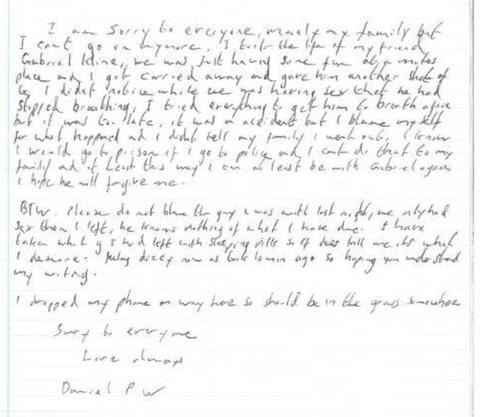 I am sorry to everyone, mainly my family but
I can't go on anymore, I took the life of my friend
Gabriel kline, we was just having some fun at a mates
place and I got carried away and gave him another shot of
G, I didnt notice while we was having sex that he had
stopped breathing, I tried everything to get him to breath again
but it was to late, it was a accident but I blame myself
for what happened and I didnt tell my family I went out, I know
I would go to prison if I go to police and I cant do that to my
family and at least this way I can at least be with Gabriel again
I hope he will forgive me.
BTW. Please do not blame the guy I was with last night, we only had
sex then I left, he knows nothing of what I have done. I have
taken what g I had left with sleeping pills so if it does kill me its what
I deserve. Feeling dizzy now as took 10 min ago so hoping you understand
my writing.
I dropped my phone on way here so should be in the grass somewhere
Sorry to everyone
Love always
Daniel P W